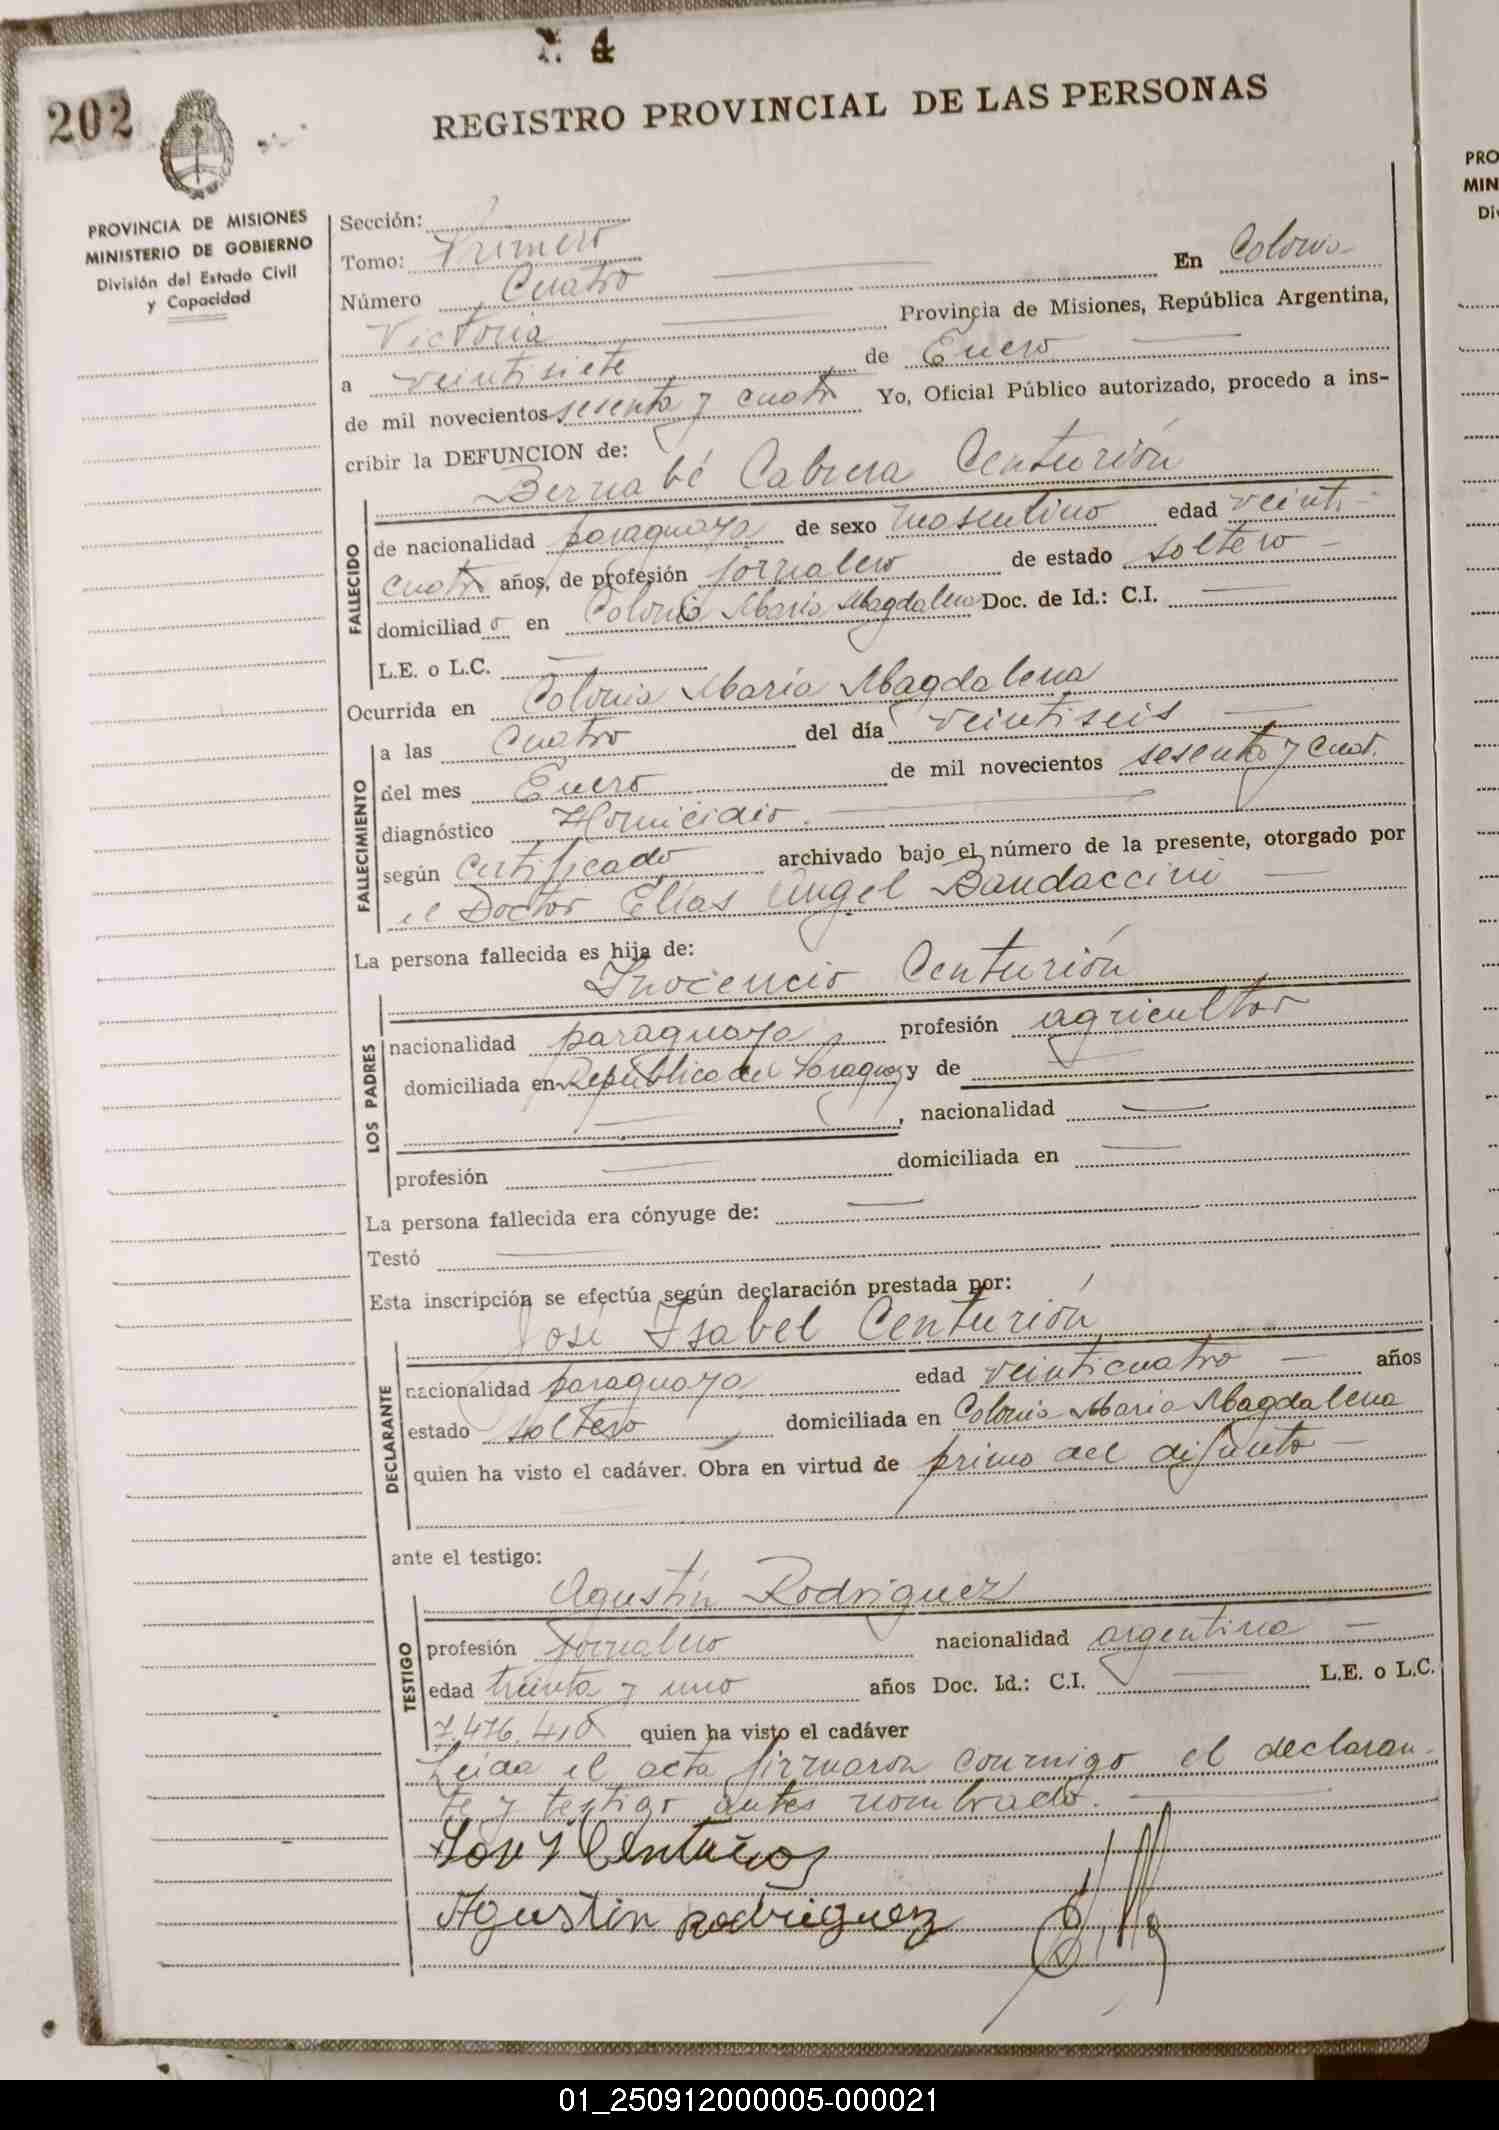 4
202
REGISTRO PROVINCIAL DE LAS PERSONAS
PROVINCIA DE MISIONES
MINISTERIO DE GOBIERNO
División del Estado Civil
y Capacidad
Sección:
Tomo: Primero
Número Cuatro En Colonia
Victoria Provincia de Misiones, República Argentina,
a veintisiete de Enero
de mil novecientos sesenta y cuatro Yo, Oficial Público autorizado, procedo a ins-
cribir la DEFUNCION de:
Bernabé Cabrera Centurión
FALLECIDO
de nacionalidad paraguaya de sexo masculino edad veinti
cuatro años, de profesión jornalero de estado soltero
domiciliado en Colonia María Magdalena Doc. de Id.: C.I.
L.E. o L.C.
Ocurrida en Colonia María Magdalena
FALLECIMIENTO
a las cuatro del día veintiseis
del mes Enero de mil novecientos sesenta y cuat.
diagnóstico Homicidio.
según certificado archivado bajo el número de la presente, otorgado por
el Doctor Elías Angel Bandaccini
La persona fallecida es hija de:
Inocencio Centurión
LOS PADRES
nacionalidad paraguaya profesión agricultor
domiciliada en República del Paraguay y de
, nacionalidad
profesión domiciliada en
La persona fallecida era cónyuge de:
Testó
Esta inscripción se efectúa según declaración prestada por:
José Isabel Centurión
DECLARANTE
nacionalidad paraguaya edad veinticuatro años
estado soltero domiciliada en Colonia María Magdalena
quien ha visto el cadáver. Obra en virtud de primo del difunto
ante el testigo:
Agustín Rodriguez
TESTIGO
profesión jornalero nacionalidad argentina
edad treinta y uno años Doc. Id.: C.I. L.E. o L.C.
7.476.410 quien ha visto el cadáver
Leida el acta firmaron conmigo el declaran-
te y testigo antes nombrado.
Agustin Rodriguez
PRO
MIN
Di
01_250912000005-000021